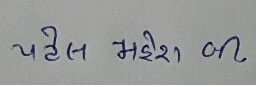 પટેલ મહેશ બી